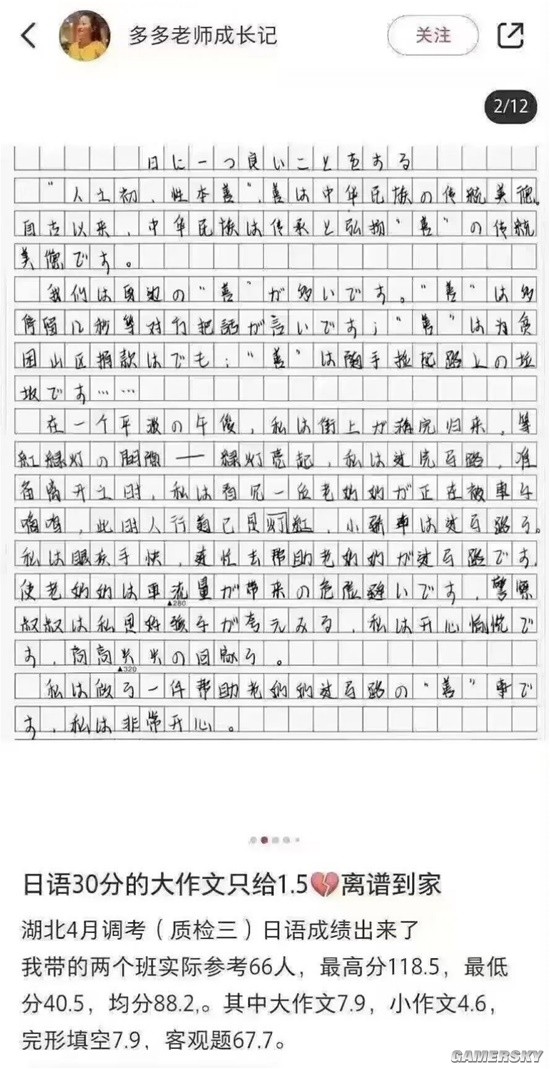 多多老师成长记
关注
2/12
日に一つ良いことをする
"人之初,性本善",善は中华民族の传統美德。
自古以来,中华民族は传承と弘扬"善"の传統
美德です。
我们は身边の"善"が多いです。"善"は多
困山区捐款はでも;"善"は随手捡起路上の垃
圾です……
在一个平淡の午後,私は街上が归来,等
紅绿灯の間隙——绿灯亮起,私は过完马路,准
备离开之时,私は看见一位老奶奶が正在被車
鳴鳴,此时人行道已見灯紅,小轿車は过马路了。
私は眼疾手快,速性去帮助老奶奶が过马路です,
使老奶奶は車流量が带来の危险避いです,警察
▲280
叔叔は私見好孩子が夸えみる,私は开心愉悦で
す,高高兴兴の回家了。
▲320
私は做了一件帮助老奶奶过马路の"善"事で
す,私は非常开心。
日语30分的大作文只给1.5💔离谱到家
湖北4月调考(质检三)日语成绩出来了
我带的两个班实际参考66人,最高分118.5,最低
分40.5,均分88.2,。其中大作文7.9,小作文4.6,
完形填空7.9,客观题67.7。
GAMERSKY